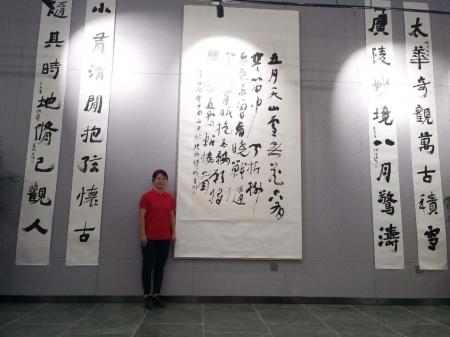 太華奇觀萬古積雪
廣陵妙境八月驚濤
五月天山雪無花只有
寒笛中聞折柳
春色未曾看曉戰隨
金鼓宵眠抱玉鞍願將
腰下劍直為斬樓蘭
小有清閒抱弦懷古
隨其時地脩己觀人